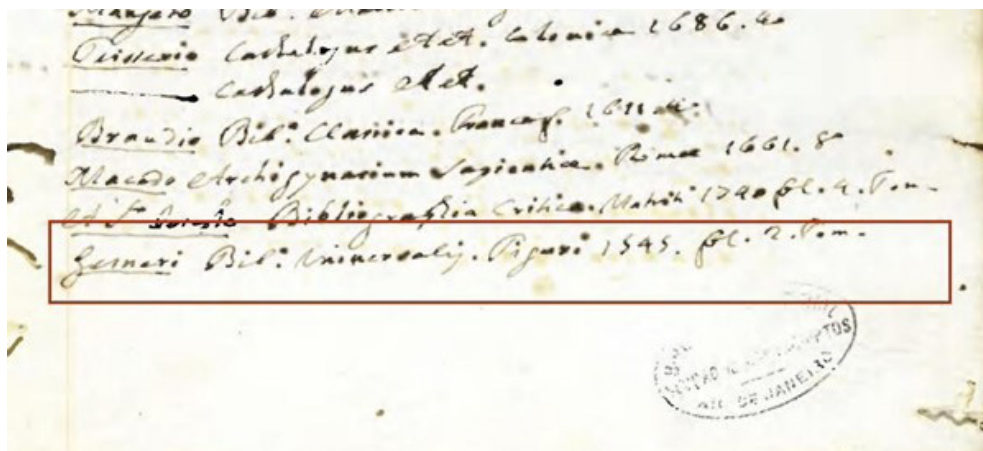 Bibᵃ.
Teisserio Cathalogus etct. Colonia 1686. 4º
——— Cathalogus etct.
Draudio Bibᵃ. Classica. Francof. 1611
Macedo Archigynasium Sapientiæ. Romæ 1661. 8º
Bibliographia Critica. Matriti 1740 fol. 4. Tom.
Gesneri Bibᵃ. Universalis. Tiguri 1545. fol. 2. Tom.
RIO DE JANEIRO